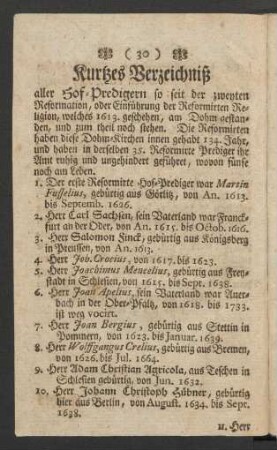 ( 30 )
Kurtzes Verzeichniß
aller Hof-Predigern so seit der zweyten
Reformation, oder Einführung der Reformirten Re-
ligion, welches 1613. geschehen, am Dohm gestan-
den, und zum theil noch stehen. Die Reformirten
haben diese Dohm-Kirchen innen gehabt 134. Jahr,
und haben in derselben 32. Reformirte Prediger ihr
Amt ruhig und ungehindert geführet, wovon fünfe
noch am Leben.
1. Der erste Reformirte Hof-Prediger war Martin
Fusselius, gebürtig aus Görlitz, von An. 1613.
bis Septemb. 1626.
2. Herr Carl Sachsen, sein Vaterland war Franck-
furt an der Oder, von An. 1615. bis Octob. 1616.
3. Herr Salomon Finck, gebürtig aus Königsberg
in Preussen, von An. 1613.
4. Herr Joh. Crocius, von 1617. bis 1623.
5. Herr Joachimus Mencelius, gebürtig aus Frey-
stadt in Schlesien, von 1615. bis Sept. 1638.
6. Herr Joan Apelius, sein Vaterland war Auer-
bach in der Ober-Pfaltz, von 1618. bis 1733.
ist weg vocirt.
7. Herr Joan Bergius, gebürtig aus Stettin in
Pommern, von 1623. bis Januar. 1639.
8. Herr Wolffgangus Crelius, gebürtig aus Bremen,
von 1626. bis Jul. 1664.
9. Herr Adam Christian Agricola, aus Teschen in
Schlesien gebürtig, von Jun. 1632.
10. Herr Johann Christoph Hübner, gebürtig
hier aus Berlin, von August. 1634. bis Sept.
1638.
11. Herr